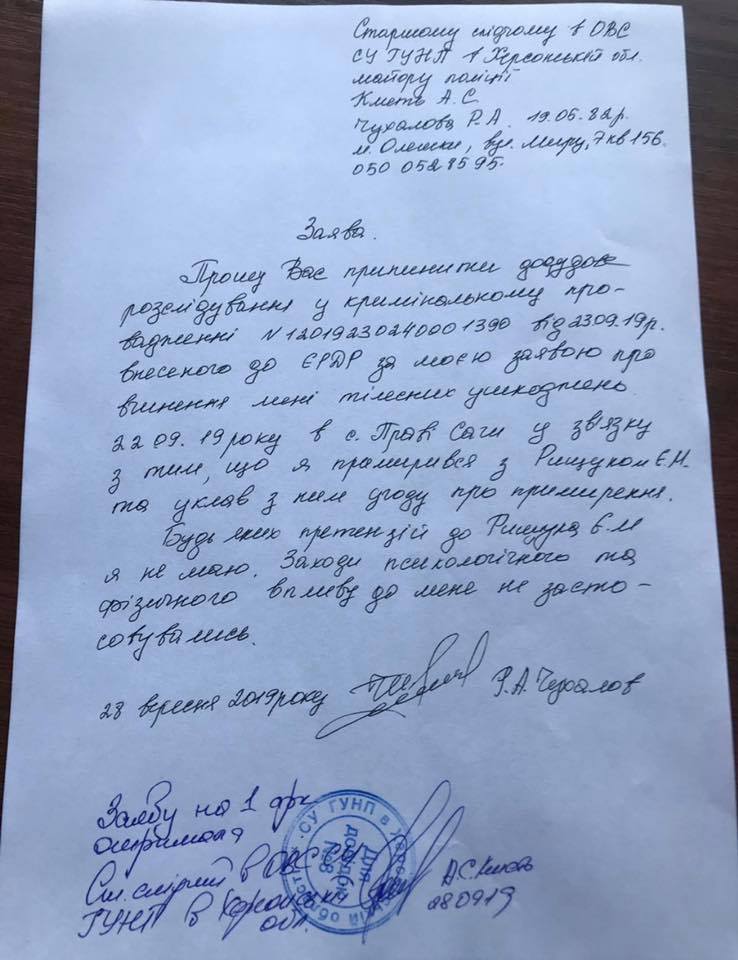 Старшому слідчому в ОВС
СУ ГУНП в Херсонській обл.
майору поліції
Кметь А.С
Чухалова Р.А. 19.05.82р.
м. Олешки, вул. Миру, 7 кв 156.
050 052 85 95.
Заява.
Прошу Вас припинити досудове
розслідування у кримінальному про-
вадженні N12019230240001390 від 23.09.19р.
внесеного до ЄРДР за моєю заявою про
вчинення мені тілесних ушкоджень
22.09.19 року в с. Саги у зв'язку
з тим, що я примирився з Рищуком Є.М.
та уклав з ним угоду про примирення.
Будь яких претензій до Рищука Є.М
я не маю. Заходи психологічного та
фізичного впливу до мене не засто-
совувались.
28 вересня 2019 року Р.А. Чухалов
Заяву на 1 арк
отримала
Ст. слідчий в ОВС СУ
ГУНП в Херсонській
обл. А.С. Кметь
280919
СУ ГУНП в Херсонській області
Для
довідок
№8